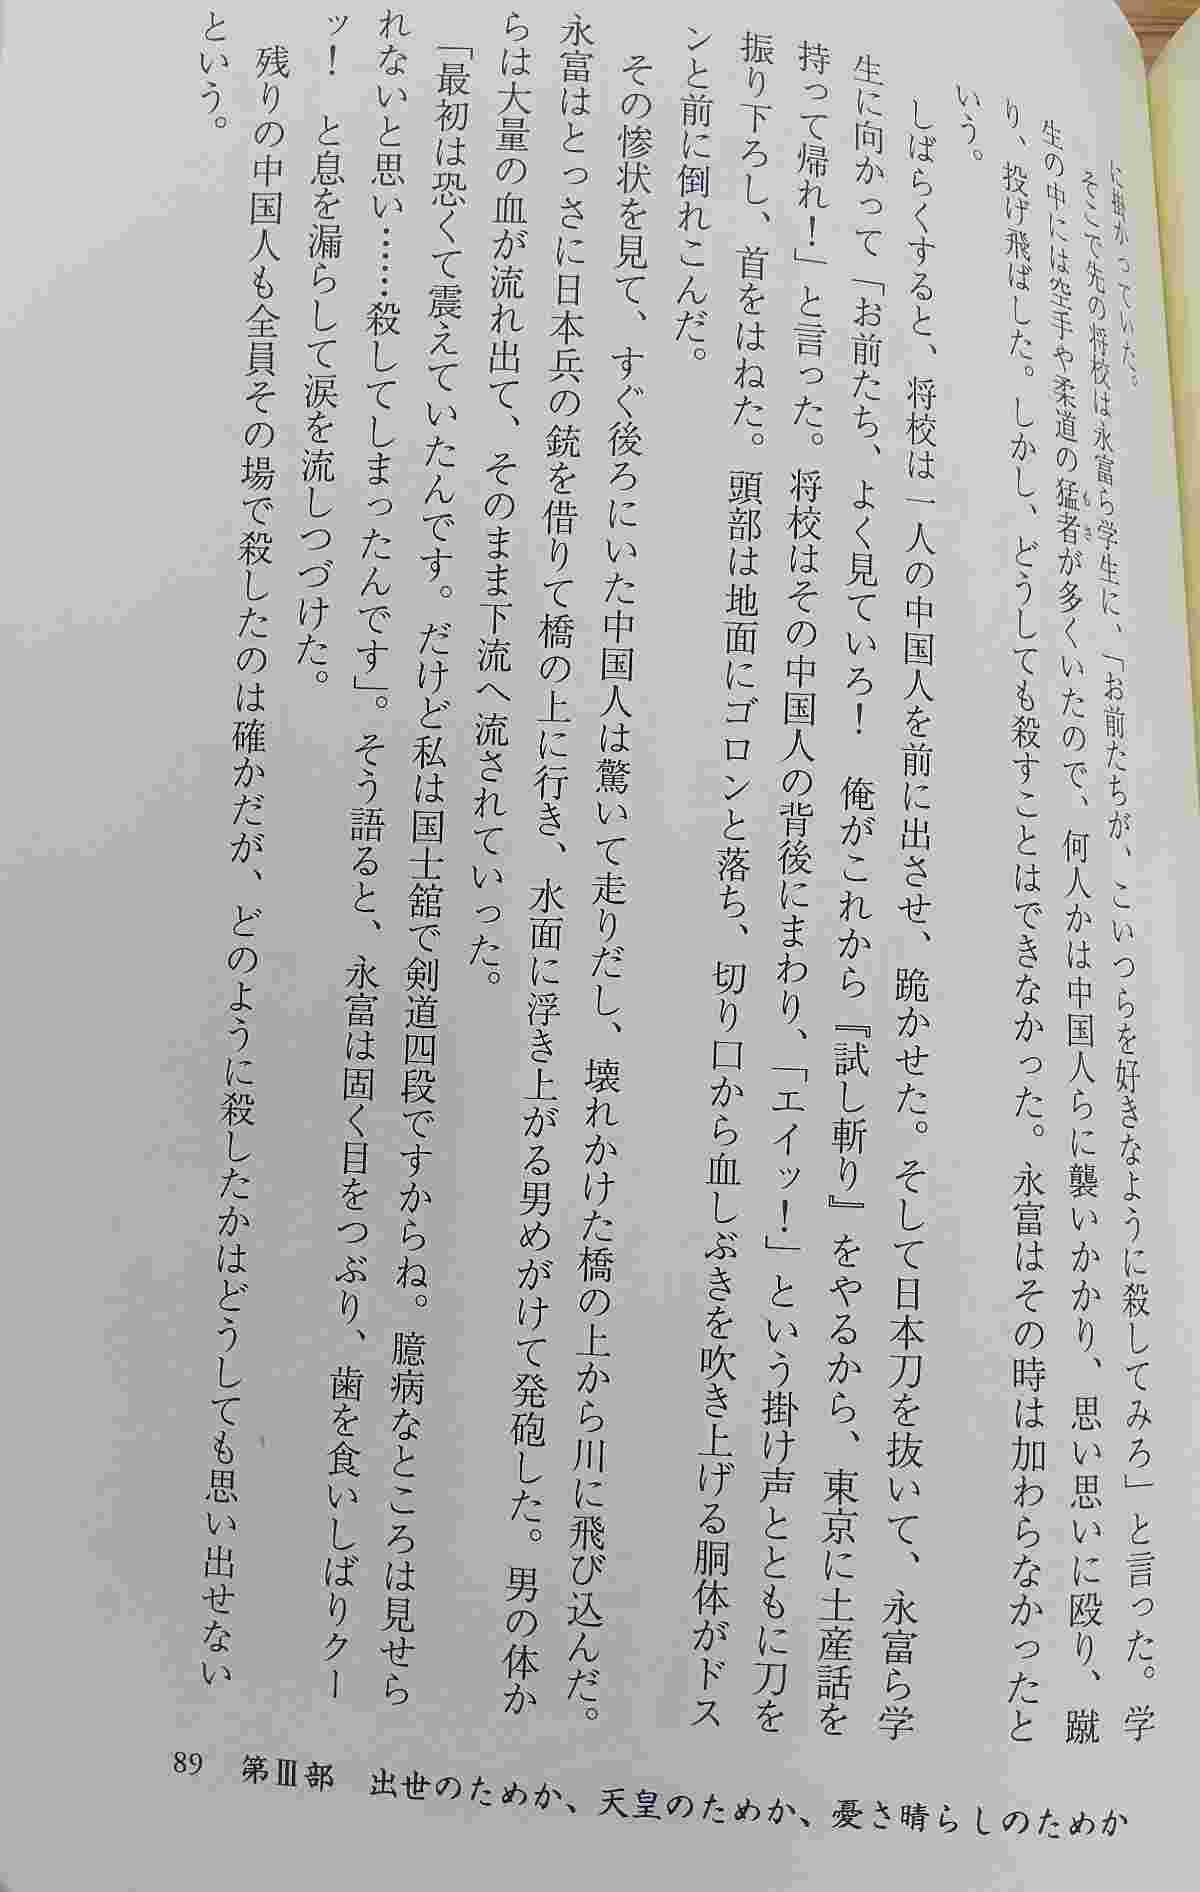 に掛かっていた。
そこで先の将校は永富ら学生に、「お前たちが、こいつらを好きなように殺してみろ」と言った。学
生の中には空手や柔道の猛者が多くいたので、何人かは中国人らに襲いかかり、思い思いに殴り、蹴
もさ
り、投げ飛ばした。しかし、どうしても殺すことはできなかった。永富はその時は加わらなかったと
いう。
しばらくすると、将校は一人の中国人を前に出させ、跪かせた。そして日本刀を抜いて、永富ら学
生に向かって「お前たち、よく見ていろ！　俺がこれから『試し斬り』をやるから、東京に土産話を
持って帰れ！」と言った。将校はその中国人の背後にまわり、「エイッ！」という掛け声とともに刀を
振り下ろし、首をはねた。頭部は地面にゴロンと落ち、切り口から血しぶきを吹き上げる胴体がドス
ンと前に倒れこんだ。
その惨状を見て、すぐ後ろにいた中国人は驚いて走りだし、壊れかけた橋の上から川に飛び込んだ。
永富はとっさに日本兵の銃を借りて橋の上に行き、水面に浮き上がる男めがけて発砲した。男の体か
らは大量の血が流れ出て、そのまま下流へ流されていった。
「最初は恐くて震えていたんです。だけど私は国士舘で剣道四段ですからね。臆病なところは見せら
れないと思い……殺してしまったんです」。そう語ると、永富は固く目をつぶり、歯を食いしばりクー
ッ！　と息を漏らして涙を流しつづけた。
残りの中国人も全員その場で殺したのは確かだが、どのように殺したかはどうしても思い出せない
という。
89　第Ⅲ部　出世のためか、天皇のためか、憂さ晴らしのためか